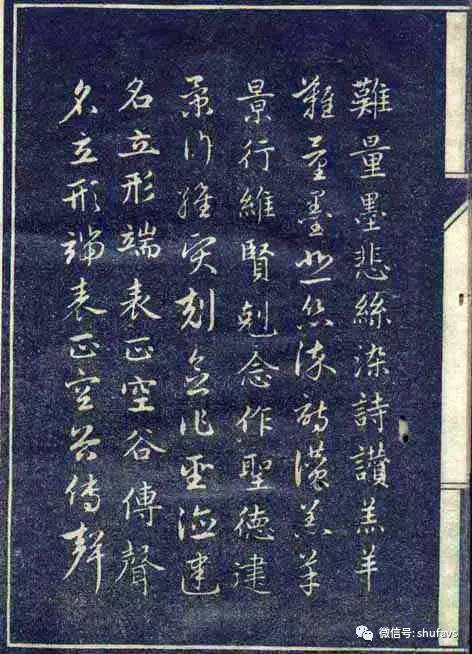 難量墨悲絲染詩讚羔羊
難量墨悲絲染詩讚羔羊
景行維賢剋念作聖德建
景行維賢剋念作聖德建
名立形端表正空谷傳聲
名立形端表正空谷傳聲
微信号: shufavs